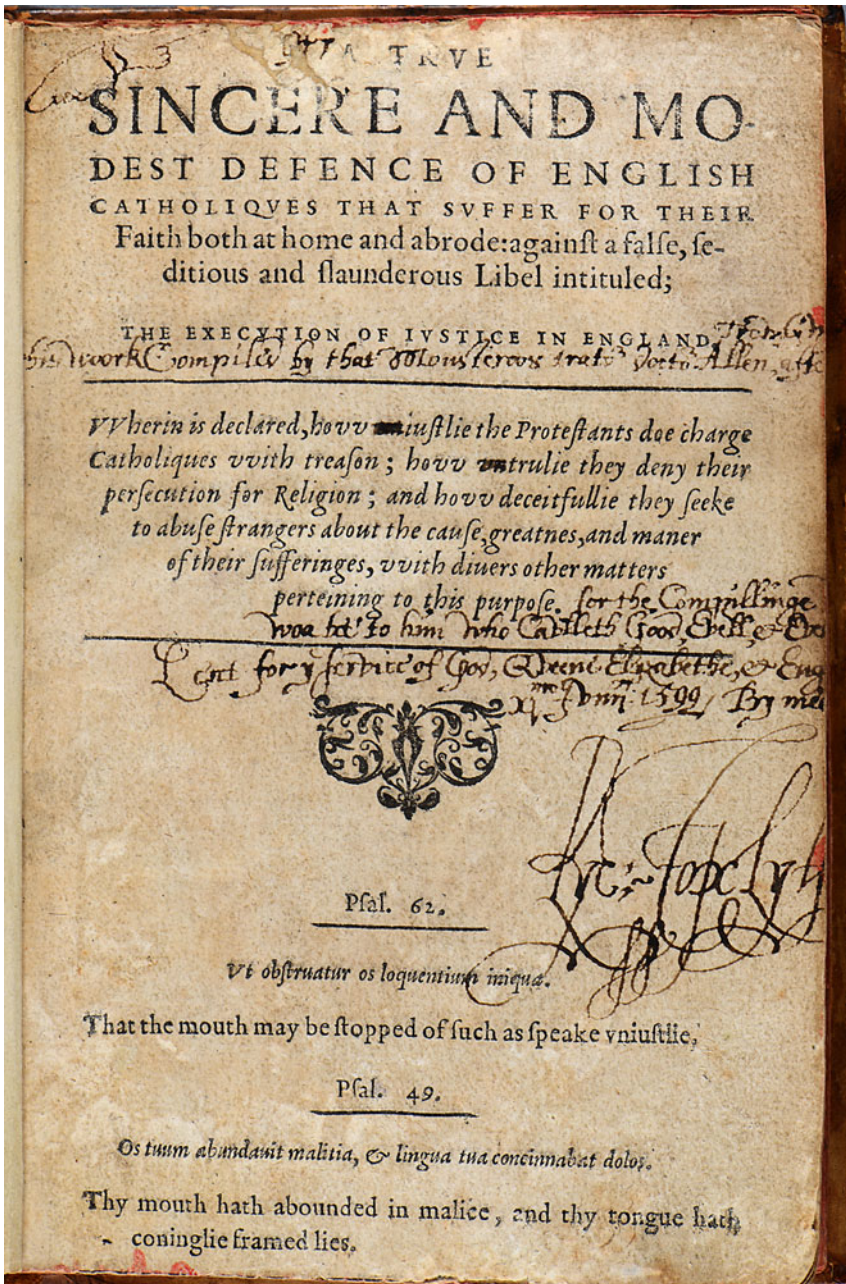 A TRVE
SINCERE AND MO-
DEST DEFENCE OF ENGLISH
CATHOLIQVES THAT SVFFER FOR THEIR
Faith both at home and abrode: againſt a falſe, ſe-
ditious and ſlaunderous Libel intituled;
THE EXECVTION OF IVSTICE IN ENGLAND,
work Compiled by that Allen
VVherin is declared, hovv iuſtlie the Proteſtants doe charge
Catholiques vvith treaſon; hovv trulie they deny their
perſecution for Religion; and hovv deceitfullie they ſeeke
to abuſe ſtrangers about the cauſe, greatnes, and maner
of their ſufferinges, vvith diuers other matters
perteining to this purpoſe. for the Compillinge
woa be to him who Calleth Good, Evell, &
for ẏ ſervice of God, Queene Elizabethe, &
1599 By me
Ryc: Topclyff
Pſal. 62.
Vt obſtruatur os loquentium iniqua.
That the mouth may be ſtopped of ſuch as ſpeake vniuſtlie,
Pſal. 49.
Os tuum abundauit malitia, & lingua tua concinnabat dolos.
Thy mouth hath abounded in malice, and thy tongue hath
coninglie framed lies.